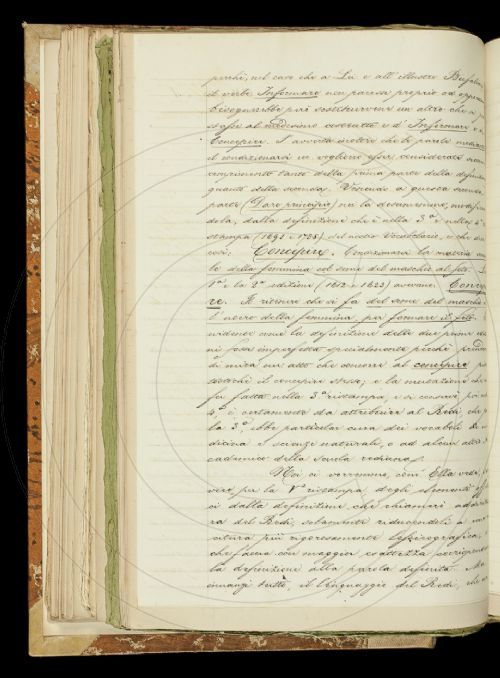 perchè, nel caso che a Lei e all'illustre Bufalini
il verbo Informare non paresse proprio od opportuno
bisognerebbe poi sostituirvene un altro che
al medesimo costrutto e d' Informare e
Concepire. S' avverta inoltre che le parole mediante
il condizionarsi ec. vogliono esser considerate
compimento tanto della prima parte della definizione
quanto della seconda. Venendo a questa seconda
parte (Dare principio) noi la desumemmo,
dola, dalla definizione che è nella 3.a e nella 4.a
stampa (1691 e 1735) del nostro Vocabolario, e che dice
così: Concepire. Condizionarsi la materia
le della femmina col seme del maschio al feto. La
1.a e la 2.a edizione (1612 e 1623) avevano: Concepi
re. Il ritenere che si fa del seme del maschio
l' uovo della femmina, per formare il feto.
evidenza come la definizione delle due prime edizio
ni fosse imperfetta specialmente perchè
di mira un atto che concorre al concepire
sicchè il concepire stesso; e la mutazione che
fu fatta nella 3.a ristampa, e si conservò poi
4.a è certamente da attribuirsi al Redi, che
la 3.a ebbe particolar cura dei vocaboli di me
dicina e scienze naturali, o ad alcun altro Ac
cademico della scuola rediana.
Noi ci vorremmo, com' Ella vede,
per la V.a ristampa degli elementi
ci dalla definizione che chiamerò
ra del Redi, solamente riducendola a
catura più rigorosamente lessicografica,
che faccia con maggior esattezza corrispondere
la definizione alla parola definita. Ma
innanzi tutto, il linguaggio del Redi, che